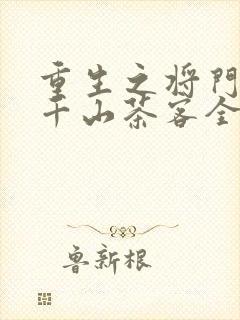 重生之将门
千山茶客全
鲁新根